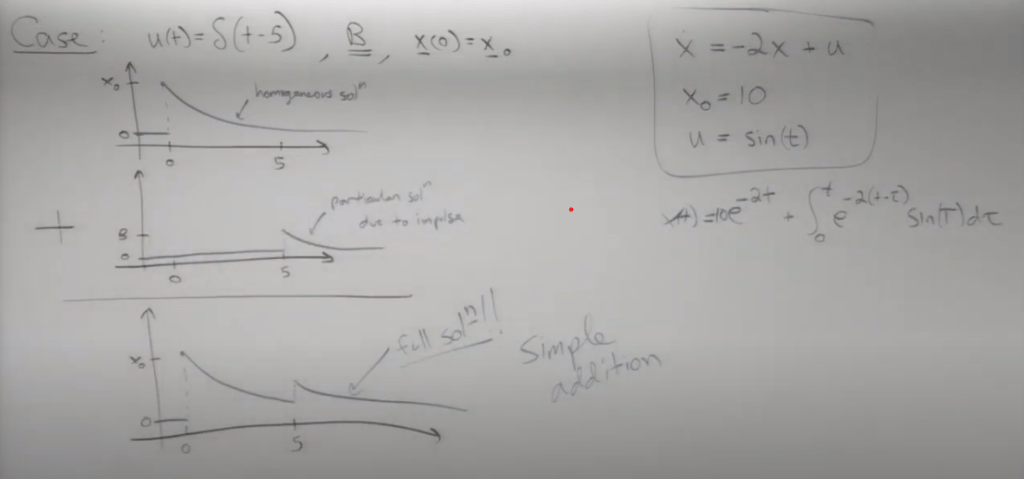 Case: u(t) = δ(t-5) , B , x(0) = x₀
x₀
homogeneous solⁿ
0
0
5
+
particular solⁿ
due to impulse
B
0
0
5
full solⁿ!!
Simple
addition
x₀
0
0
5
ẋ = -2x + u
x₀ = 10
u = sin(t)
x(t) = 10e^{-2t} + ∫₀ᵗ e^{-2(t-τ)} sin(τ) dτ